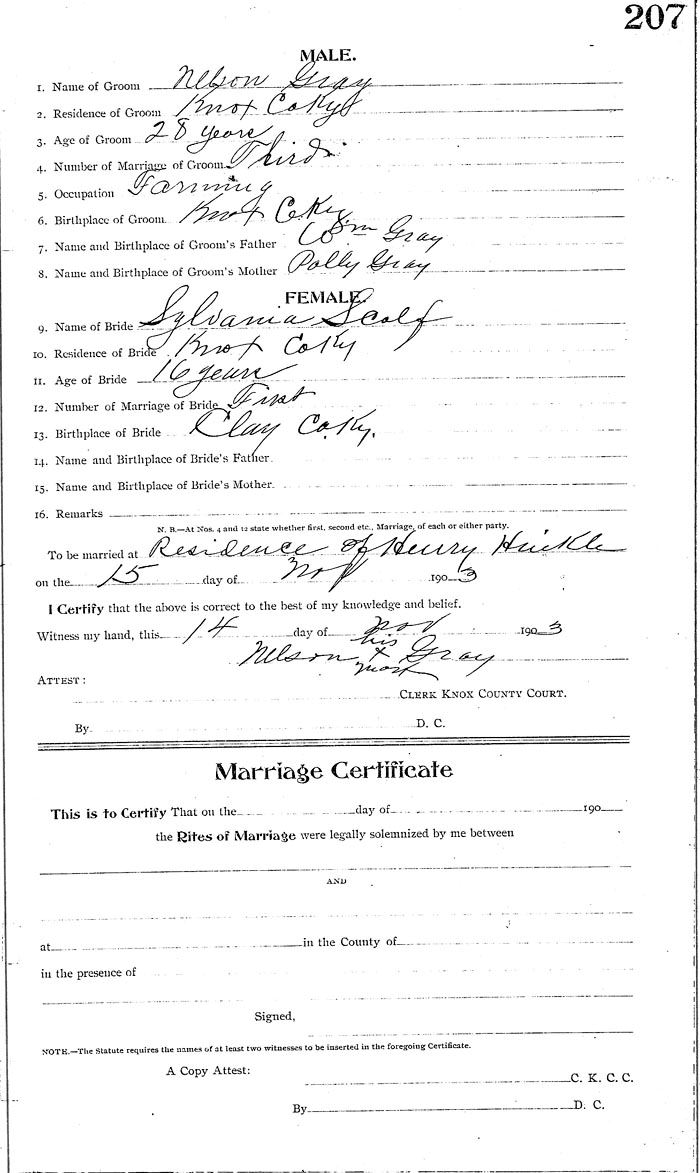 207
MALE.
1. Name of Groom Nelson Gray
2. Residence of Groom Knox Co Ky
3. Age of Groom 28 years
4. Number of Marriage of Groom Third
5. Occupation Farming
6. Birthplace of Groom Knox Co Ky
7. Name and Birthplace of Groom's Father Wm Gray
8. Name and Birthplace of Groom's Mother Polly Gray
FEMALE.
9. Name of Bride Sylvania Scalf
10. Residence of Bride Knox Co Ky
11. Age of Bride 16 years
12. Number of Marriage of Bride First
13. Birthplace of Bride Clay Co. Ky.
14. Name and Birthplace of Bride's Father
15. Name and Birthplace of Bride's Mother
16. Remarks
N. B.—At Nos. 4 and 12 state whether first, second etc., Marriage, of each or either party.
To be married at Residence of Henry Hinkle
on the 15 day of Nov 1903
I Certify that the above is correct to the best of my knowledge and belief.
Witness my hand, this 14 day of Nov 1903
his
Nelson x Gray
mark
ATTEST:
CLERK KNOX COUNTY COURT.
By D. C.
Marriage Certificate
This is to Certify That on the day of 190
the Rites of Marriage were legally solemnized by me between
AND
at in the County of
in the presence of
Signed,
NOTE.—The Statute requires the names of at least two witnesses to be inserted in the foregoing Certificate.
A Copy Attest:
C. K. C. C.
By D. C.